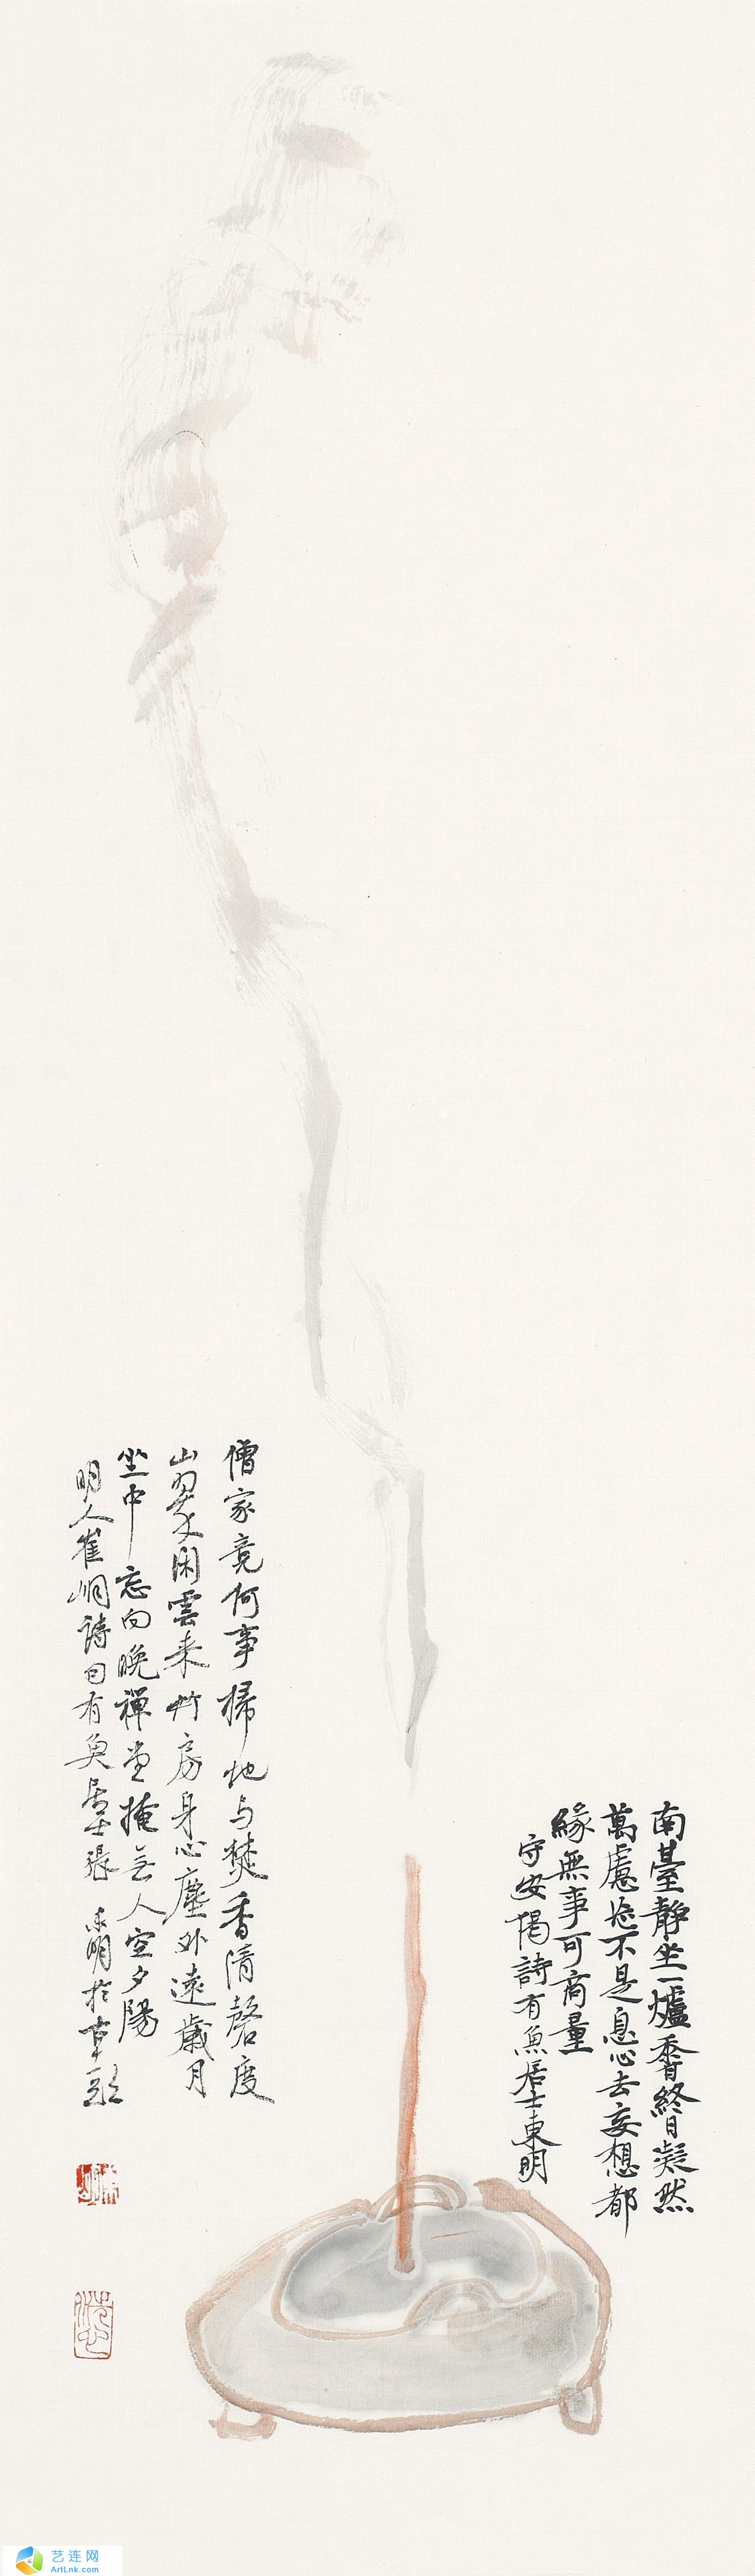 南臺靜坐一爐香終日凝然
萬慮忘不是息心去妄想都
緣無事可商量
守安偈詩有魚居士東明
僧家竟何事掃地与焚香清磬度
山翠闲雲来竹房身心塵外遠歲月
坐中忘向晚禪堂掩无人空夕陽
明人崔峒詩句有魚居士張東明於
艺连网
ArtLnk.com